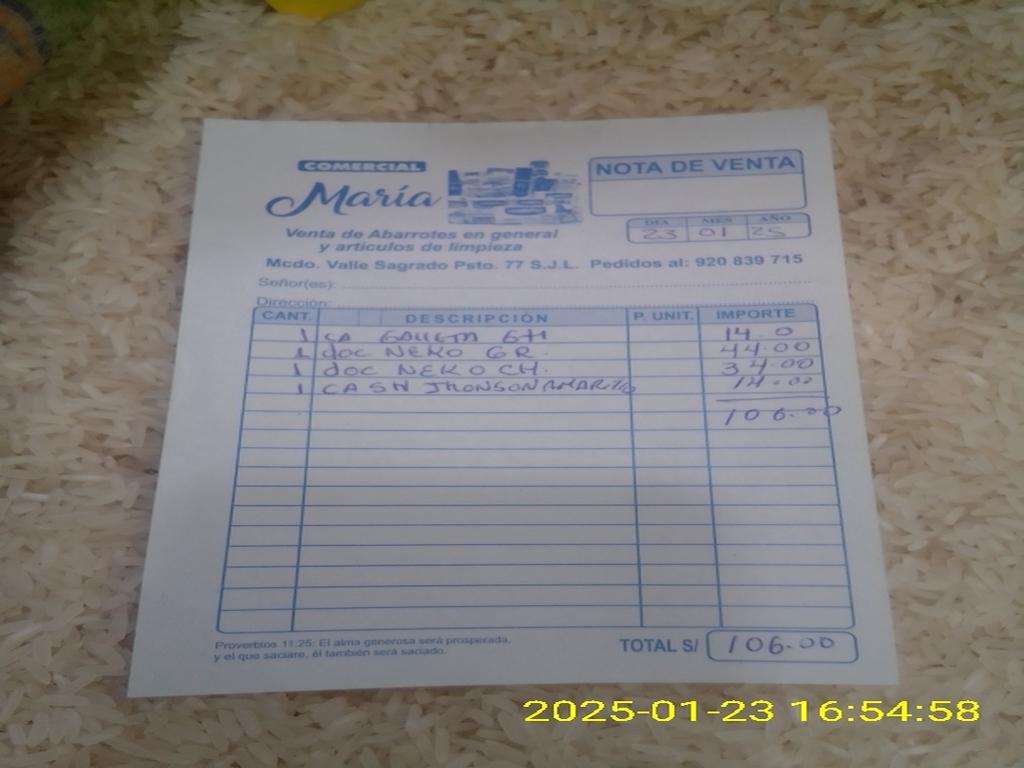 COMERCIAL
María
Venta de Abarrotes en general
y artículos de limpieza
NOTA DE VENTA
DIA MES AÑO
23 01 25
Mcdo. Valle Sagrado Psto. 77 S.J.L. Pedidos al: 920 839 715
Señor(es):
Dirección:
CANT. DESCRIPCIÓN P. UNIT. IMPORTE
1 CA 14.0
1 doc NEKO GR. 44.00
1 doc NEKO CH. 34.00
1 CA SH JHONSON AMARILLO 14.00
106.00
Proverbios 11:25: El alma generosa será prosperada,
y el que saciare, él también será saciado.
TOTAL S/ 106.00
2025-01-23 16:54:58